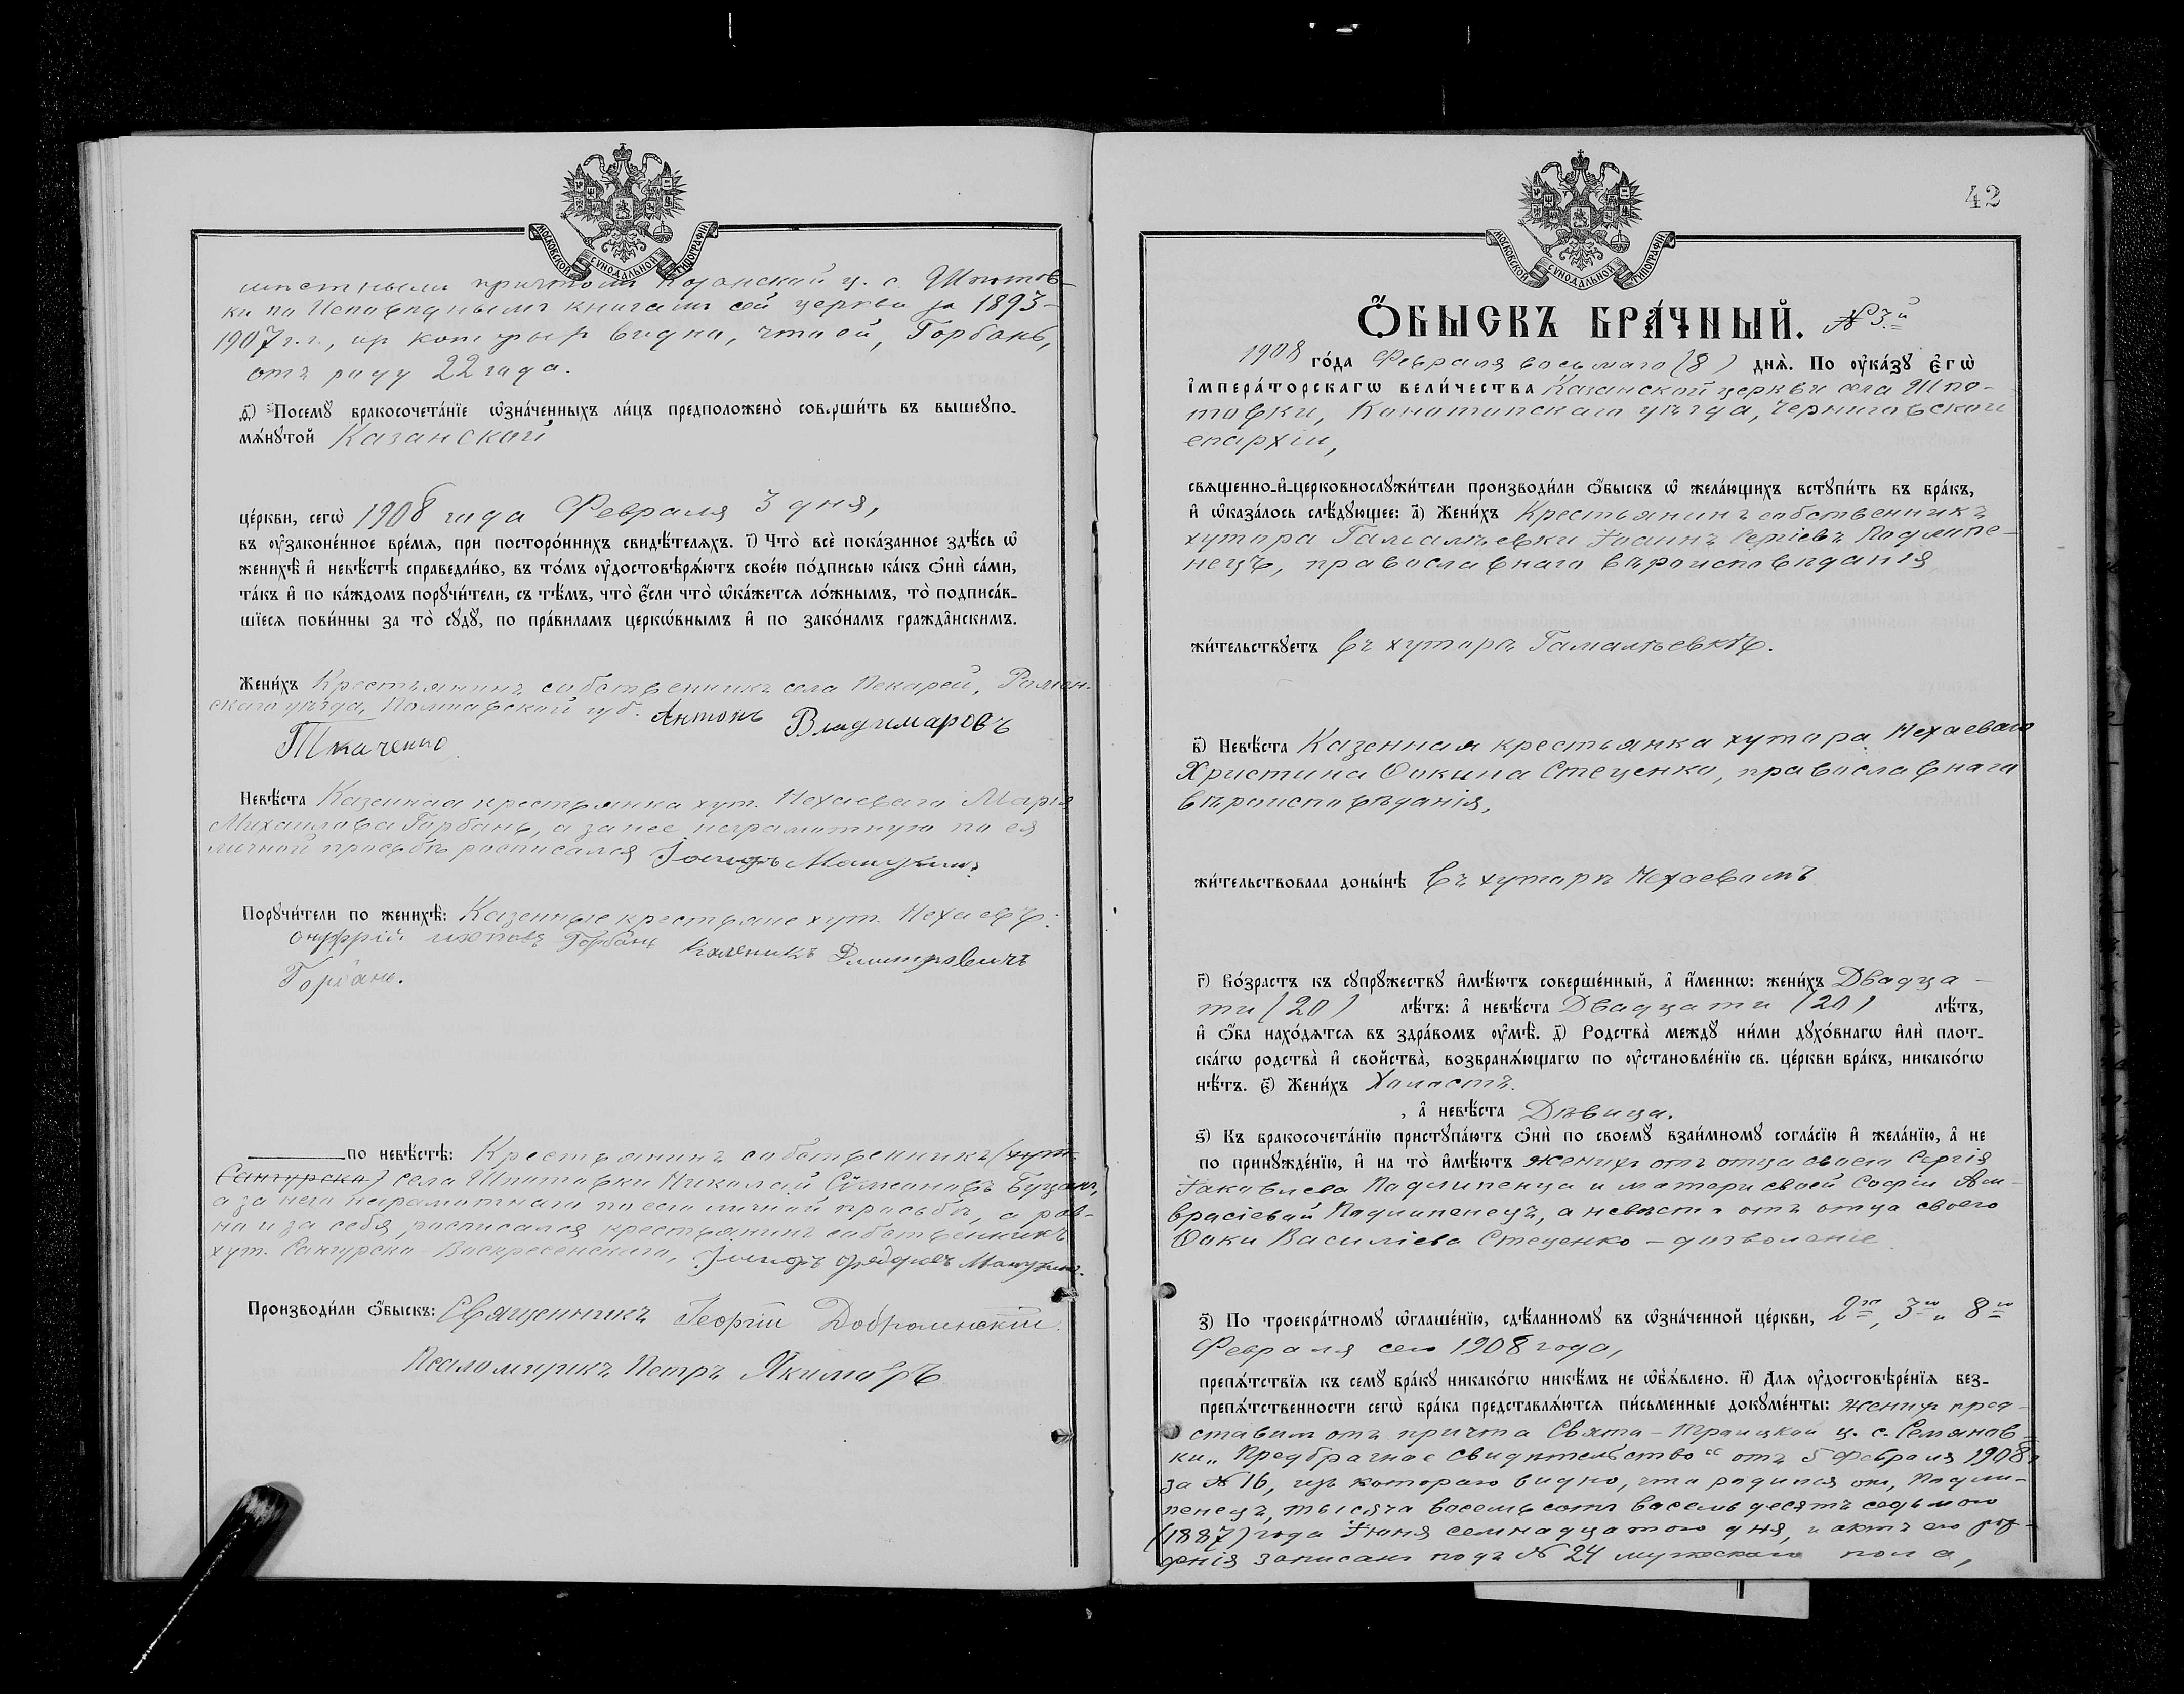 МОСКОВСКОЙ СѴНОДАЛЬНОЙ ТИПОГРАФІИ
мѣстнымъ причтомъ Казанской ц. с. Шпотов-
ки по Исповѣднымъ книгамъ сей церкви за 1893-
1907 г.г., изъ которыхъ видно, что ей, Горбань,
отъ роду 22 года.
Посемꙋ бракосочета́нїе ѡзна́ченныхъ ли́цъ предположено̀ соверши́ть въ вышеꙋпо-
мѧ́нꙋтой Казанской
це́ркви, сегѡ̀ 1908 года Февраля 3 дня,
въ ᲂу҆законе́нное вре́мѧ, при посторо́ннихъ свидѣ́телѧхъ. і҃) Что̀ всѐ пока́занное здѣ́сь ѡ҆
женихѣ̀ и҆ невѣ́стѣ справедли́во, въ то́мъ ᲂу҆достовѣрѧ́ютъ свое́ю по́дписью ка́къ ѻ҆нѝ са́ми,
та́къ и҆ по ка́ждомъ порꙋчи́тели, съ тѣ́мъ, что̀ є҆́сли что̀ ѡ҆ка́жетсѧ ло́жнымъ, то̀ подписа́в-
шїесѧ пови́нны за то̀ сꙋдꙋ̀, по пра́виламъ церкѡ́внымъ и҆ по зако́намъ гражда̂нскимъ.
Жени́хъ Крестьянинъ собственникъ села Пекарей, Ромен-
скаго уѣзда, Полтавской губ. Антонъ Владимаровъ
Ткаченко
Невѣ́ста Казенная крестьянка хут. Нехаеваго Марія
Михаилова Горбань, а за нее неграмотную по ея
личной просьбѣ росписался
Порꙋчи́тели по женихѣ̀: Казенные крестьяне хут. Нехаевъ:
онуфрій Горбань Каленикъ Дмитровичъ
Горбань.
по невѣ́стѣ: Крестьянинъ собственникъ (хут.
Сангурска) села Шпотовки Николай Сѵмеоновъ Буцанъ,
а за него неграмотнаго по его личной просьбѣ, а рав-
но и за себя, росписался крестьянинъ собственникъ
хут. Сангурско-Воскресенскаго,
Производи́ли ѻ҆́быскъ: Священникъ Георгій
Псаломщикъ Петръ Якимовъ
42
МОСКОВСКОЙ СѴНОДАЛЬНОЙ ТИПОГРАФІИ
Ѻ҆́БЫСКЪ БРА́ЧНЫЙ. № 3й
1908 го́да Февраля восьмаго (8) днѧ̀. По ᲂу҆ка́зꙋ Є҆гѡ̀
і҆мпера́торскагѡ вели́чества Казанской церкви села Шпо-
товки, Конотопскаго уѣзда, Черниговской
епархіи,
свѧщенно-и҆-церковнослꙋжи́тели производи́ли ѻ҆́быскъ ѡ҆ жела́ющихъ встꙋпи́ть въ бра́къ,
и҆ ѡ҆каза́лось слѣ́дꙋющее: а҃) Жени́хъ Крестьянинъ собственникъ
хутора Гамалѣевки Іоаннъ Сергіевъ Подлипе-
нецъ, православнаго вѣроисповѣданія
жи́тельствꙋетъ въ хуторѣ Гамалѣевкѣ.
в҃) Невѣ́ста Казенная крестьянка хутора Нехаеваго
Христина Ѳокина Стеценко, православнаго
вѣроисповѣданія,
жи́тельствовала доны́нѣ въ хуторѣ Нехаевомъ
г҃) Во́зрастъ къ сꙋпрꙋ́жествꙋ и҆мѣ́ютъ соверше́нный, а҆ и҆́меннѡ: жени́хъ Двадца-
ти (20) лѣ́тъ: а҆ невѣ́ста Двадцати (20) лѣ́тъ,
и҆ ѻ҆́ба нахо́дѧтсѧ въ здра́вомъ ᲂу҆мѣ̀. д҃) Родства̀ междꙋ̀ ни́ми дꙋхо́внагѡ и҆лѝ плот-
ска́гѡ родства̀ и҆ свойства̀, возбранѧ́ющагѡ по ᲂу҆становле́нїю св. це́ркви бра́къ, никако́гѡ
нѣ́тъ. є҃) Жени́хъ Холостъ.
, а҆ невѣ́ста Дѣвица.
ѕ҃) Къ бракосочета́нїю пристꙋпа́ютъ ѻ҆нѝ по своемꙋ̀ взаи́мномꙋ согла́сїю и҆ жела́нїю, а҆ не
по принꙋжде́нїю, и҆ на то̀ и҆мѣ́ютъ женихъ отъ отца своего Сергія
Іаковлева Подлипенца и матери своей Софіи Ам-
вросіевой Подлипенецъ, а невѣста отъ отца своего
Ѳоки Василіева Стеценко – дозволеніе
з҃) По троекра́тномꙋ ѡ҆глаше́нїю, сдѣ́ланномꙋ въ ѡ҆зна́ченной це́ркви, 2го, 3го и 8го
Февраля сего 1908 года,
препѧ́тствїѧ къ семꙋ̀ бра́кꙋ никако́гѡ никѣ́мъ не ѡ҆б̾ѧ́влено. и҃) Длѧ ᲂу҆достовѣре́нїѧ без-
препѧ́тственности сегѡ̀ бра́ка представлѧ́ютсѧ пи́сьменные докꙋме́нты: женихъ пред-
ставилъ отъ причта Свято-Троицкой ц. с. Семянов-
ки „Предбрачное свидѣтельство“ отъ 5 Февраля 1908 г.
за № 16, изъ котораго видно, что родился онъ, Подли-
пенецъ, тысяча восемьсотъ восемьдесятъ седьмого
(1887) года Іюня семнадцатого дня, и актъ его рож-
денія записанъ подъ № 24 мужескаго пола,